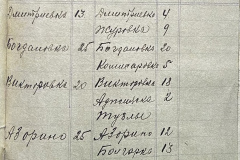 Дмитриевка 13 Дмитриевка 4
Журовка 9
Богдановка 25 Богдановка 20
5
Викторовка 20 Викторовка 18
Аджигиска 2
Тузлы
Аворино 25 Аворино 12
Бондарка 13